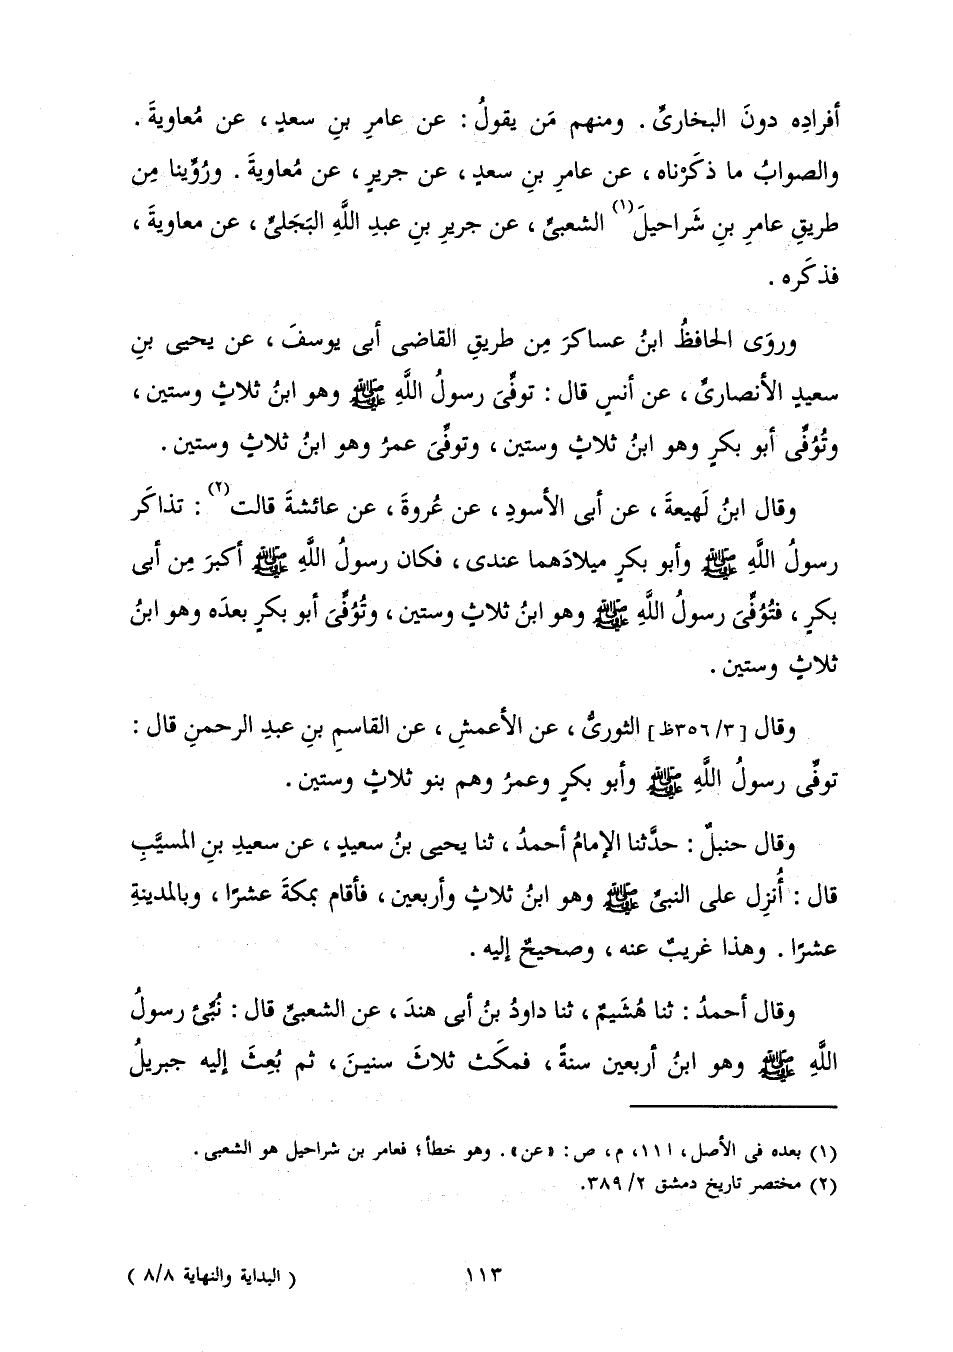 أفرادِه دونَ البخارىِّ . ومنهم مَن يقولُ : عن عامرِ بنِ سعدٍ ، عن مُعاويةَ .
والصوابُ ما ذكَرْناه ، عن عامرِ بنِ سعدٍ ، عن جريرٍ ، عن مُعاويةَ . ورُوِّينا مِن
طريقِ عامرِ بنِ شَراحيلَ(١) الشعبىِّ ، عن جريرِ بنِ عبدِ اللَّهِ البَجَلىِّ ، عن معاويةَ ،
فذكَره .
وروَى الحافظُ ابنُ عساكرَ مِن طريقِ القاضى أبى يوسفَ ، عن يحيى بنِ
سعيدٍ الأنصارىِّ ، عن أنسٍ قال : توفِّىَ رسولُ اللَّهِ ﷺ وهو ابنُ ثلاثٍ وستين ،
وتُوُفِّى أبو بكرٍ وهو ابنُ ثلاثٍ وستين ، وتوفِّىَ عمرُ وهو ابنُ ثلاثٍ وستين .
وقال ابنُ لَهيعةَ ، عن أبى الأسودِ ، عن عُروةَ ، عن عائشةَ قالت(٢) : تذاكَر
رسولُ اللَّهِ ﷺ وأبو بكرٍ ميلادَهما عندى ، فكان رسولُ اللَّهِ ﷺ أكبرَ مِن أبى
بكرٍ ، فتُوُفِّىَ رسولُ اللَّهِ ﷺ وهو ابنُ ثلاثٍ وستين ، وتُوُفِّىَ أبو بكرٍ بعدَه وهو ابنُ
ثلاثٍ وستين .
وقال [٣/ ٣٥٦ظ] الثورىُّ ، عن الأعمشِ ، عن القاسمِ بنِ عبدِ الرحمنِ قال :
توفِّى رسولُ اللَّهِ ﷺ وأبو بكرٍ وعمرُ وهم بنو ثلاثٍ وستين .
وقال حنبلٌ : حدَّثنا الإمامُ أحمدُ ، ثنا يحيى بنُ سعيدٍ ، عن سعيدِ بنِ المسيَّبِ
قال : أُنزِل على النبىِّ ﷺ وهو ابنُ ثلاثٍ وأربعين ، فأقام بمكةَ عشرًا ، وبالمدينةِ
عشرًا . وهذا غريبٌ عنه ، وصحيحٌ إليه .
وقال أحمدُ : ثنا هُشَيمٌ ، ثنا داودُ بنُ أبى هندَ ، عن الشعبىِّ قال : نُبِّئَ رسولُ
اللَّهِ ﷺ وهو ابنُ أربعين سنةً ، فمكَث ثلاثَ سنينَ ، ثم بُعِثَ إليه جبريلُ
(١) بعده فى الأصل ، ا ١١، م ، ص : «عن» . وهو خطأ ؛ فعامر بن شراحيل هو الشعبى .
(٢) مختصر تاريخ دمشق ٢/ ٣٨٩.
١١٣
( البداية والنهاية ٨/٨ )